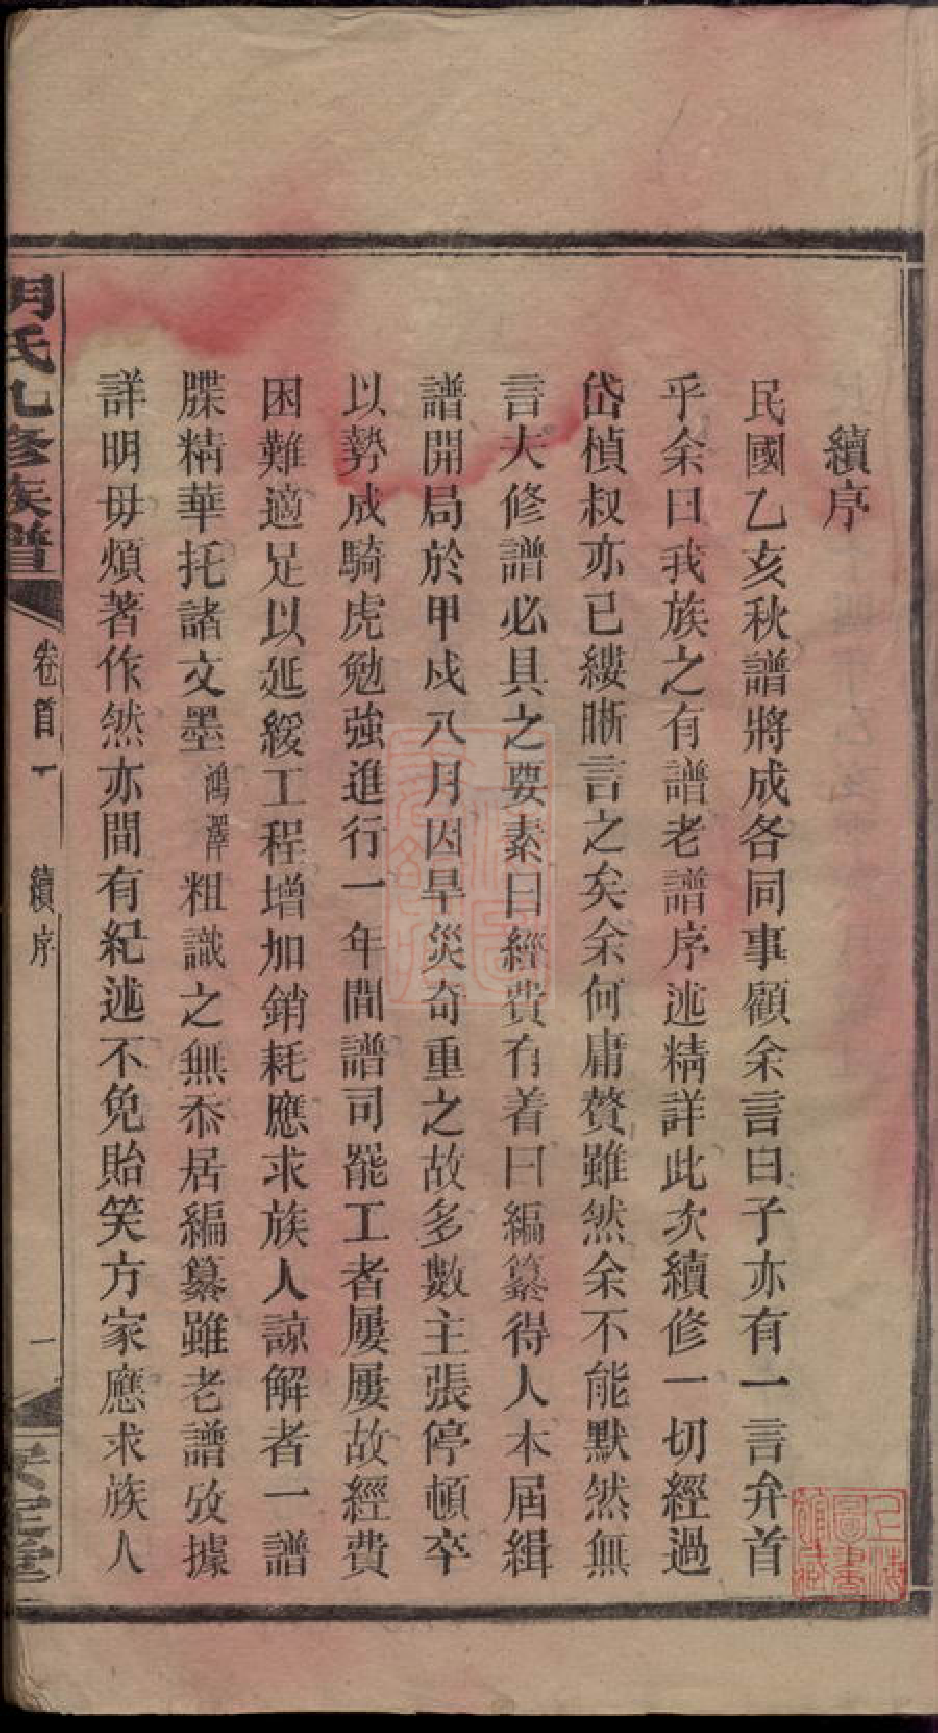 續序
民國乙亥秋譜將成各同事顧余言曰子亦有一言弁首
乎余曰我族之有譜老譜序述精詳此次續修一切經過
岱楨叔亦已縷晰言之矣余何庸贅雖然余不能默然無
言大修譜必具之要素曰經費有着曰編纂得人本屆緝
譜開局於甲戍八月因旱災奇重之故多數主張停頓卒
以勢成騎虎勉強進行一年間譜司罷工者屢屢故經費
困難適足以延綏工程增加銷耗應求族人諒解者一譜
牒精華托諸文墨鴻澤粗識之無忝居編纂雖老譜攷據
詳明毋煩著作然亦間有紀述不免貽笑方家應求族人
氏九修族譜
卷首
續序
一
上海圖書館藏